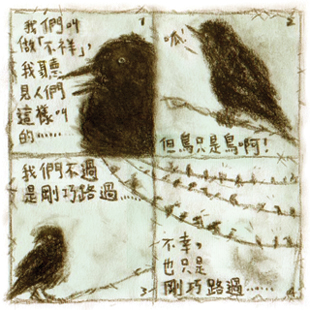 1
我們叫
做「不祥」，
我聽
見人們
這樣叫
的……
2
呱
但鳥只是鳥啊！
我們不過
是剛巧路過……
3
不幸，
也只是
剛巧路過……
4